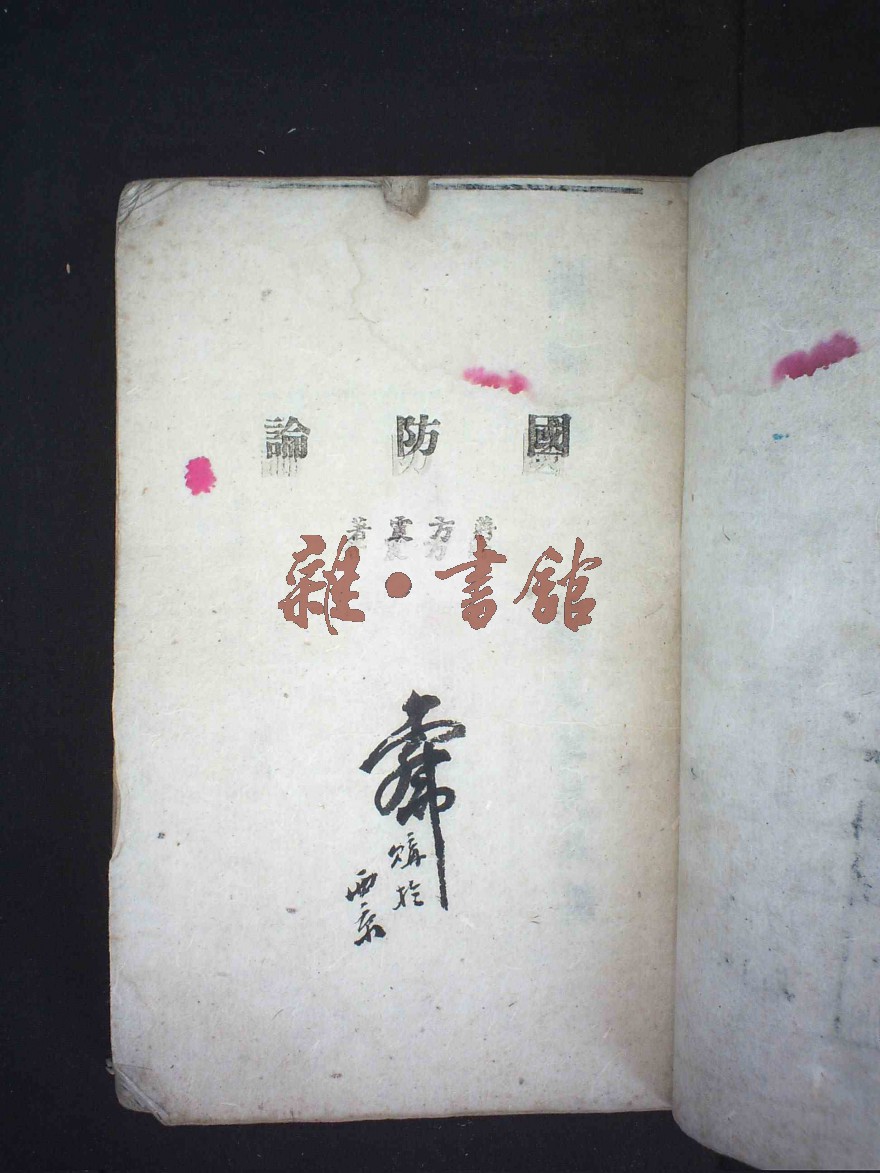 國防論
蔣方震著
雜·書館
購於
西京